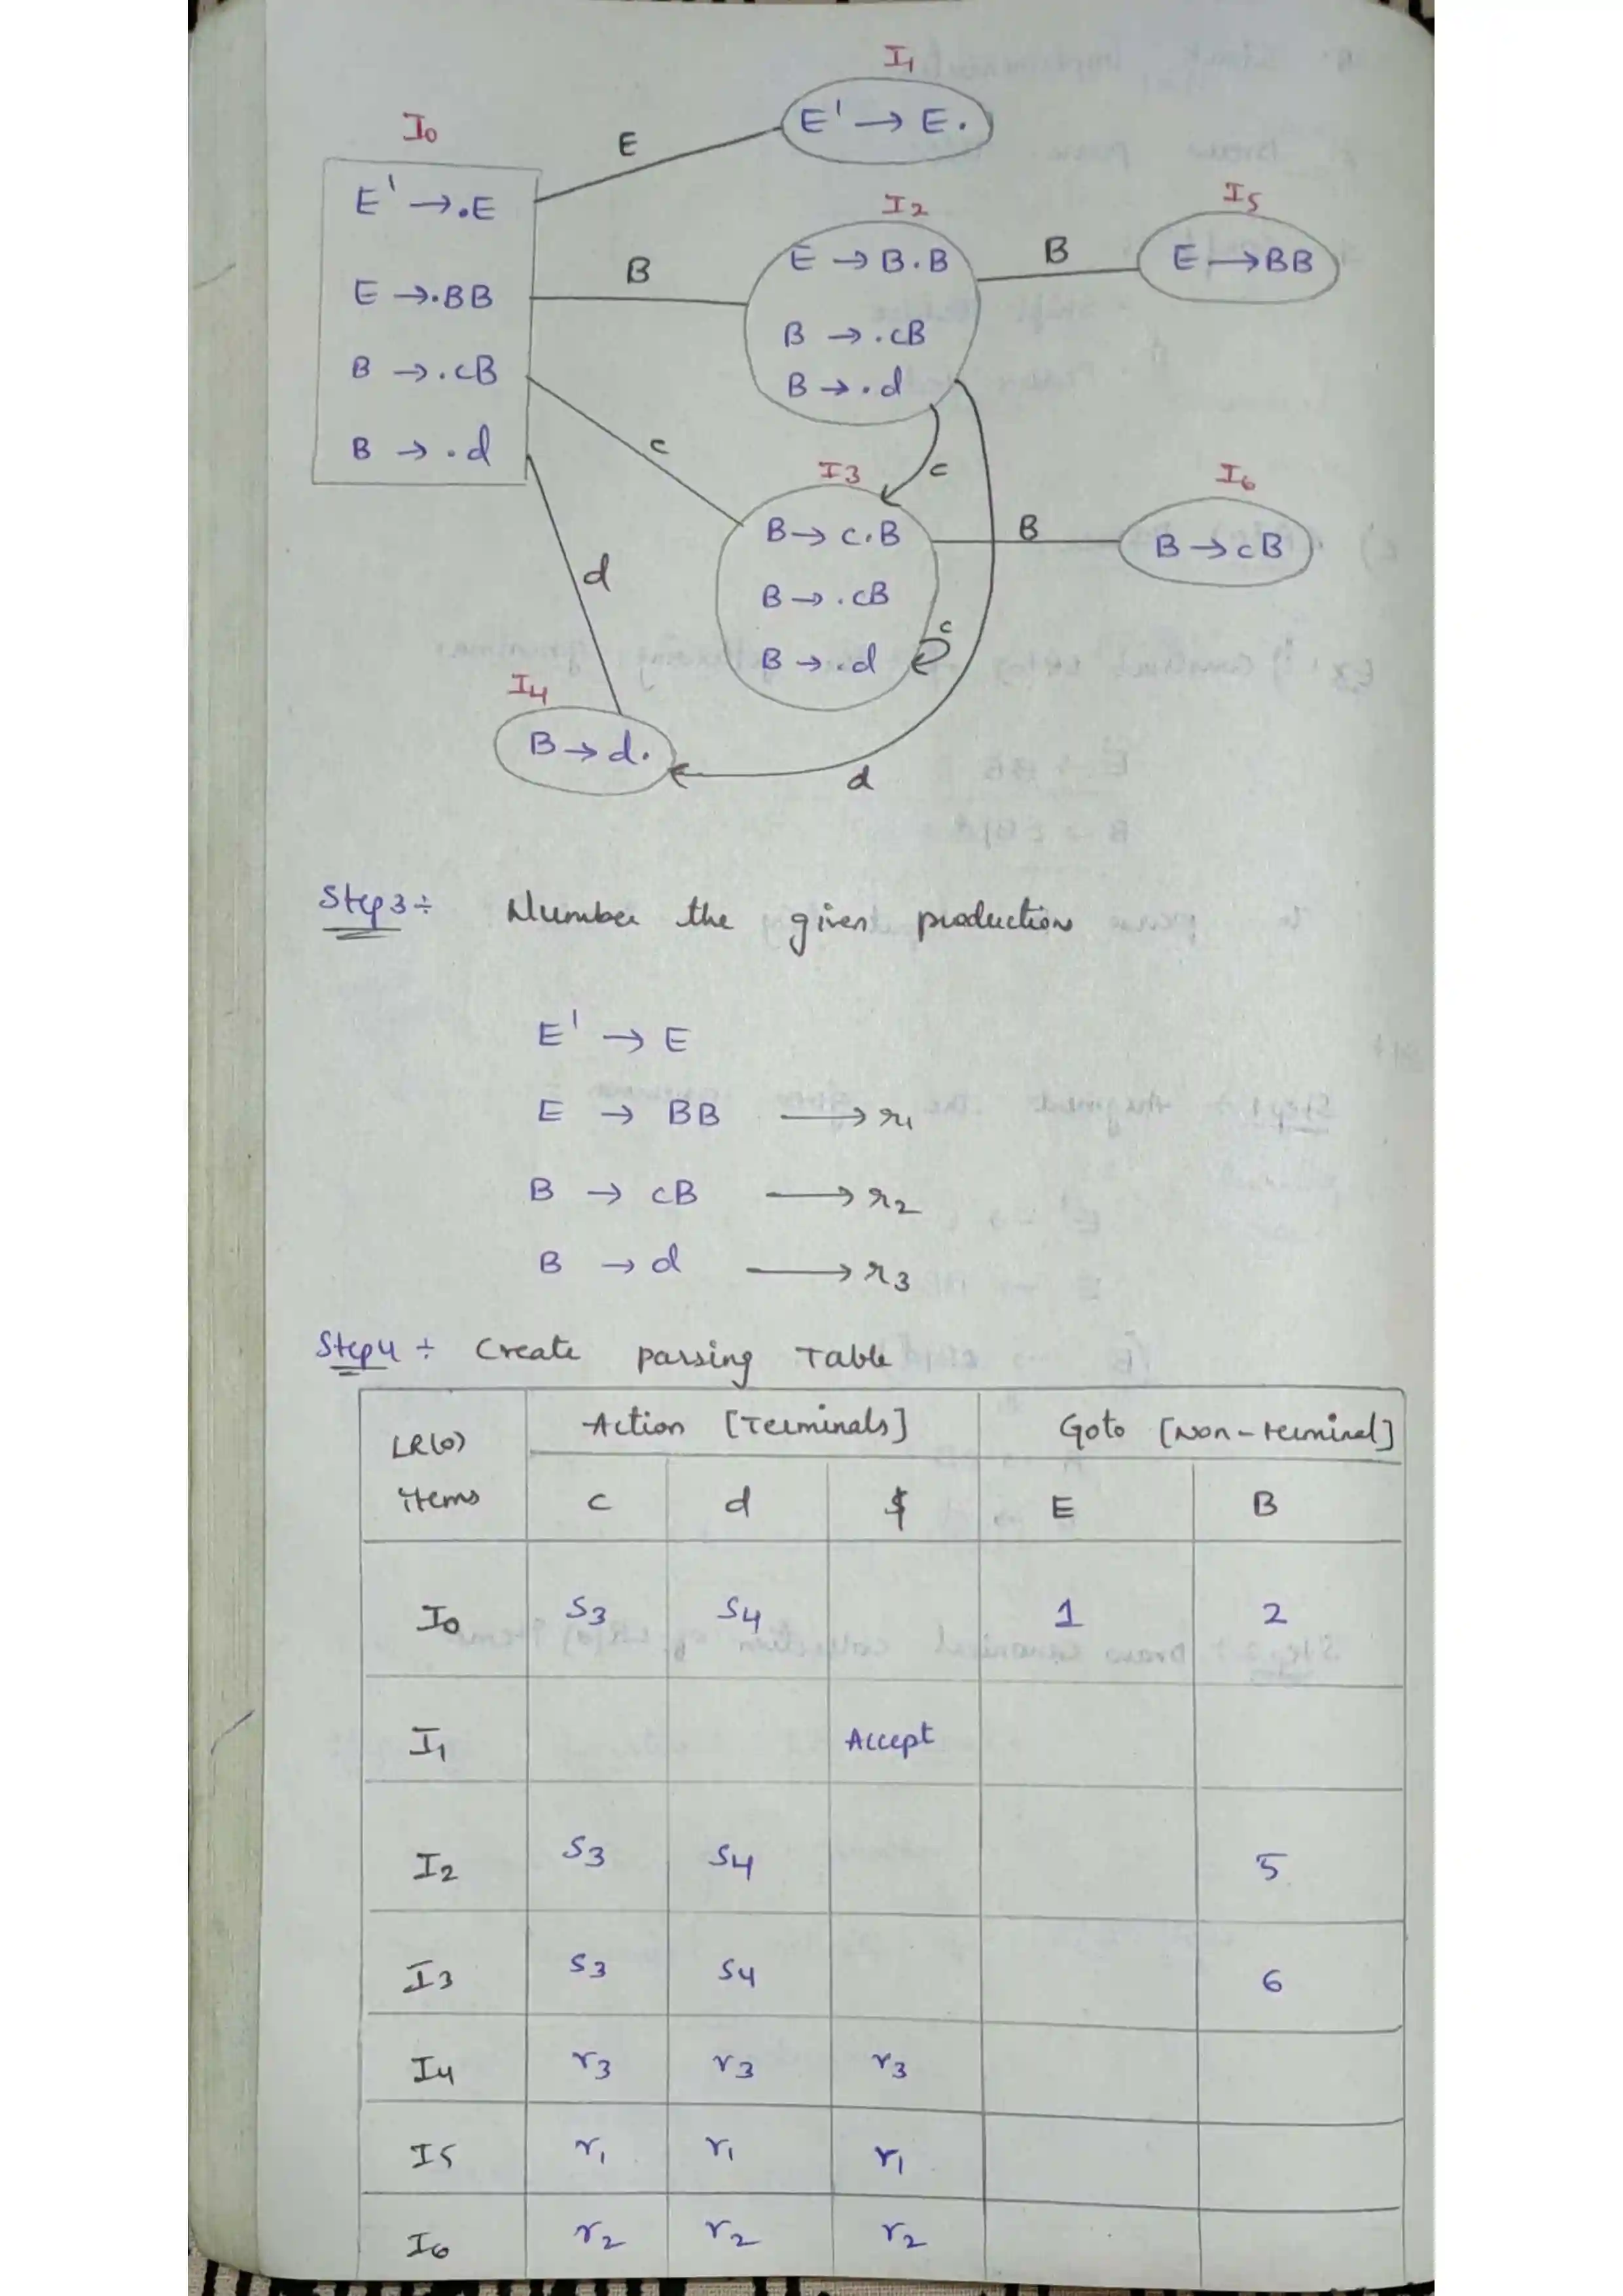 I1
E' → E.
I0
E
E' → .E
I2
I5
E → B.B
B
E → BB
B
E → .BB
B → .cB
B → .cB
B → .d
c
B → .d
c
I3
I6
B → c.B
B
B → cB
d
B → .cB
c
B → .d
I4
B → d.
d
Step 3 ÷ Number the given productions
E' → E
E → BB ⟶ r1
B → cB ⟶ r2
B → d ⟶ r3
Step 4 ÷ Create parsing Table
LR(0) items Action [Terminals] Goto [Non-terminal]
c d $ E B
I0 S3 S4 1 2
I1 Accept
I2 S3 S4 5
I3 S3 S4 6
I4 r3 r3 r3
I5 r1 r1 r1
I6 r2 r2 r2